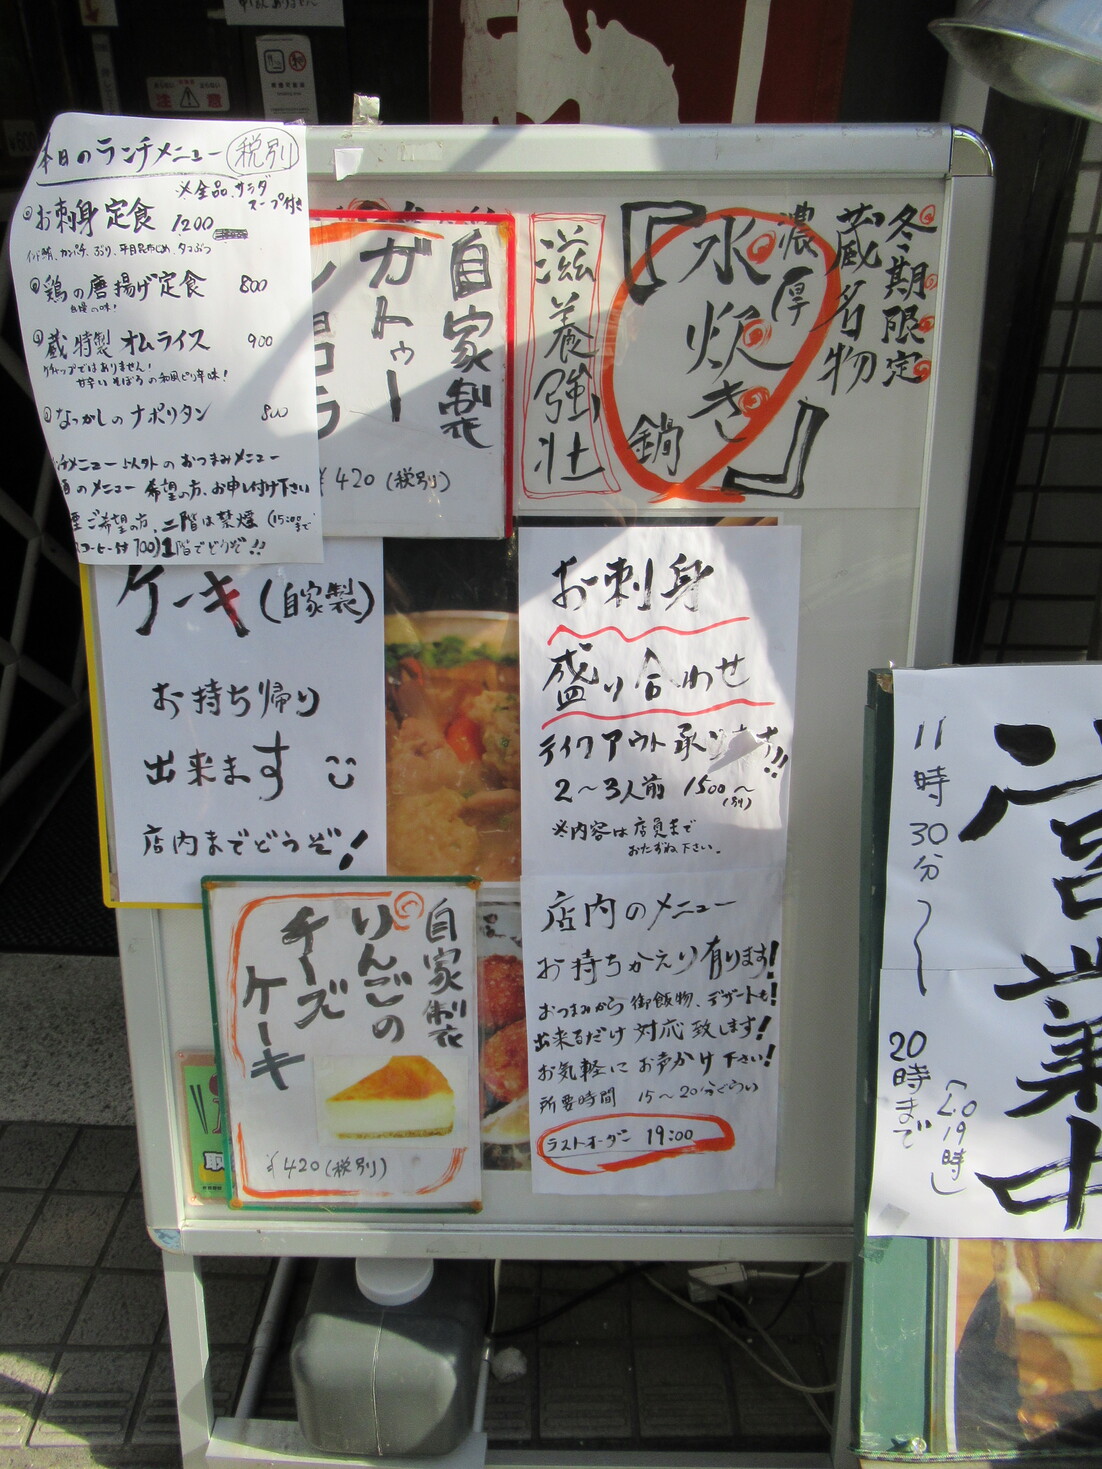 注意
本日のランチメニュー 税別
※全品、サラダ
スープ付き
お刺身定食 1200
鶏の唐揚げ定食 800
自慢の味!
蔵特製オムライス 900
ケチャップではありません!
甘辛いそぼろの和風ピリ辛味!
なつかしのナポリタン 800
チメニュー以外のおつまみメニュー
のメニュー希望の方、お申し付け下さい
ご希望の方、二階は禁煙(15:00まで
コーヒー付100)1階でどうぞ!!
自家製
ガトー
ショコラ
¥420(税別)
滋養強壮
冬期限定
蔵名物
濃厚
『水炊き』
鍋
ケーキ(自家製)
お持ち帰り
出来ます
店内までどうぞ!
お刺身
盛り合わせ
テイクアウト承ります!!
2〜3人前 1500〜
(別)
※内容は店員まで
おたずね下さい。
店内のメニュー
お持ちかえり有ります!
おつまみから御飯物、デザートも!
出来るだけ対応致します!
お気軽にお声かけ下さい!
所要時間 15〜20分ぐらい
ラストオーダー 19:00
自家製
りんごの
チーズ
ケーキ
¥420(税別)
取
営業中
11時30分〜
20時まで
(L.O19時)